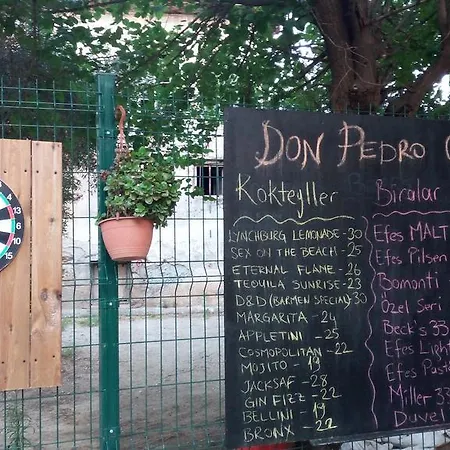 DON PEDRO
Kokteyller
LYNCHBURG LEMONADE-30
SEX ON THE BEACH-25
ETERNAL FLAME-26
TEQUILA SUNRISE-23
D&D (BARMEN SPECIAL) 30
MARGARITA-24
APPLETINI-25
COSMOPOLITAN-22
MOJITO-19
JACKSAF-28
GIN FIZZ-19
BELLINI-19
BRONX-22
Biralar
Efes MALT
Efes Pilsen
Bomonti
Özel Seri
Beck's 33
Efes Light
Efes Past
Miller 33
Duvel
13
4
6
10
15